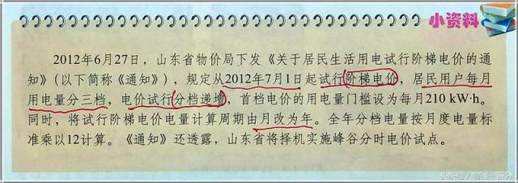 小资料
2012年6月27日，山东省物价局下发《关于居民生活用电试行阶梯电价的通
知》（以下简称《通知》），规定从2012年7月1日起试行阶梯电价，居民用户每月
用电量分三档，电价试行分档递增，首档电价的用电量门槛设为每月210 kW·h。
同时，将试行阶梯电价电量计算周期由月改为年。全年分档电量按月度电量标
准乘以12计算。《通知》还透露，山东省将择机实施峰谷分时电价试点。